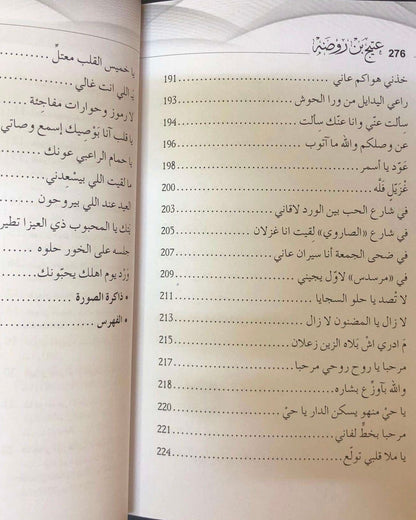 276 عتيج بن روضه
خذني هواكم عاني 191
راعي البدايل من ورا الحوش 193
سألت عنّي وانا عنّك سألت 194
عن وصلكم والله ما آتوب 196
عَوّد يا أسمر 198
غْزَيّل فَلّه 200
في شارع الحب بين الورد لاقاني 203
في شارع «الصاروي» لقيت انا غزلان 205
في ضحى الجمعة أنا سيران عاني 207
في «مرسدس» لاوّل يجيني 209
لا تْصد يا حلو السجايا 211
لا زال يا المضنون لا زال 213
مَ ادري اشْ بَلاه الزين زعلان 215
مرحبا يا روح روحي مرحبا 217
والله بَآوزّع بشاره 218
يا حيّ منهو يسكن الدار يا حيّ 220
مرحبا بخطٍّ لفاني 221
يا ملا قلبي تولّع 224
يا خميس القلب معتلّ
يَ اللي انت غالي
لا رموز وحوارات مفاجئة
يا قلب آنا بَوْصيك إسمع وصاتي
يا حمام الراعبي عونك
ما لقيت اللي بيسْعِدني
العيد عند اللي يروحون
بَنك يا المحبوب ذي العيزا تطير
جلسه على الخور حلوه
وَرّد يوم اهلك يحبّونك
• ذاكرة الصورة
• الفهرس